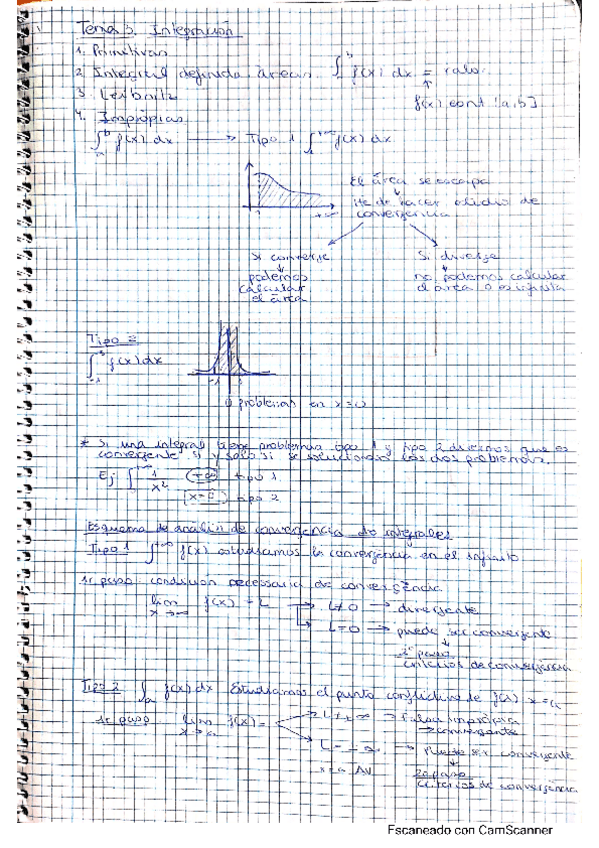 Tema 3. Integración
1. Primitivas
2. Integral definida áreas ∫ᵇ f(x) dx = valor
f(x) cont [a,b]
3. Leibnitz
4. Impropias
∫ₐᵇ f(x) dx → Tipo 1 ∫₁⁺∞ f(x) dx
El área se escapa
He de hacer estudio de
convergencia
Si converge
podemos
calcular
el área
Si diverge
no podemos calcular
el área o es infinita
Tipo 2
∫₋₁ f(x) dx
-1
problemas en x=0
* Si una integral tiene problemas tipo 1 y tipo 2 diremos que es
convergente si y solo si se solucionan los dos problemas.
Ej ∫ 1/x² (+∞) tipo 1
(x=0) tipo 2
Esquema de análisis de convergencia de integrales
Tipo 1 ∫⁺∞ f(x) estudiamos la convergencia en el infinito
1r paso condición necesaria de convergencia
lim x→∞ f(x) = L → L≠0 → divergente
→ L=0 → puede ser convergente
2º paso
criterios de convergencia
Tipo 2 ∫ₐ f(x) dx Estudiamos el punto conflictivo de f(x) x=a
1r paso lim x→a f(x) = L≠±∞ → Falsa impropia
→ convergente
L=±∞ → Puede ser convergente
x=a AV
2o paso
criterios de convergencia
Escaneado con CamScanner